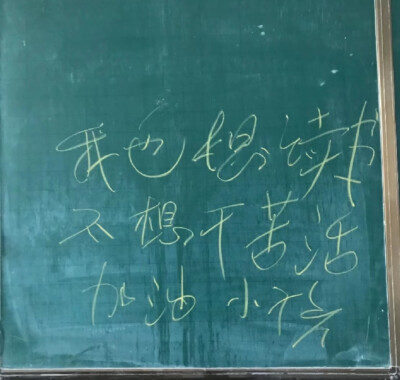 我也想读书
不想干苦活
加油 小